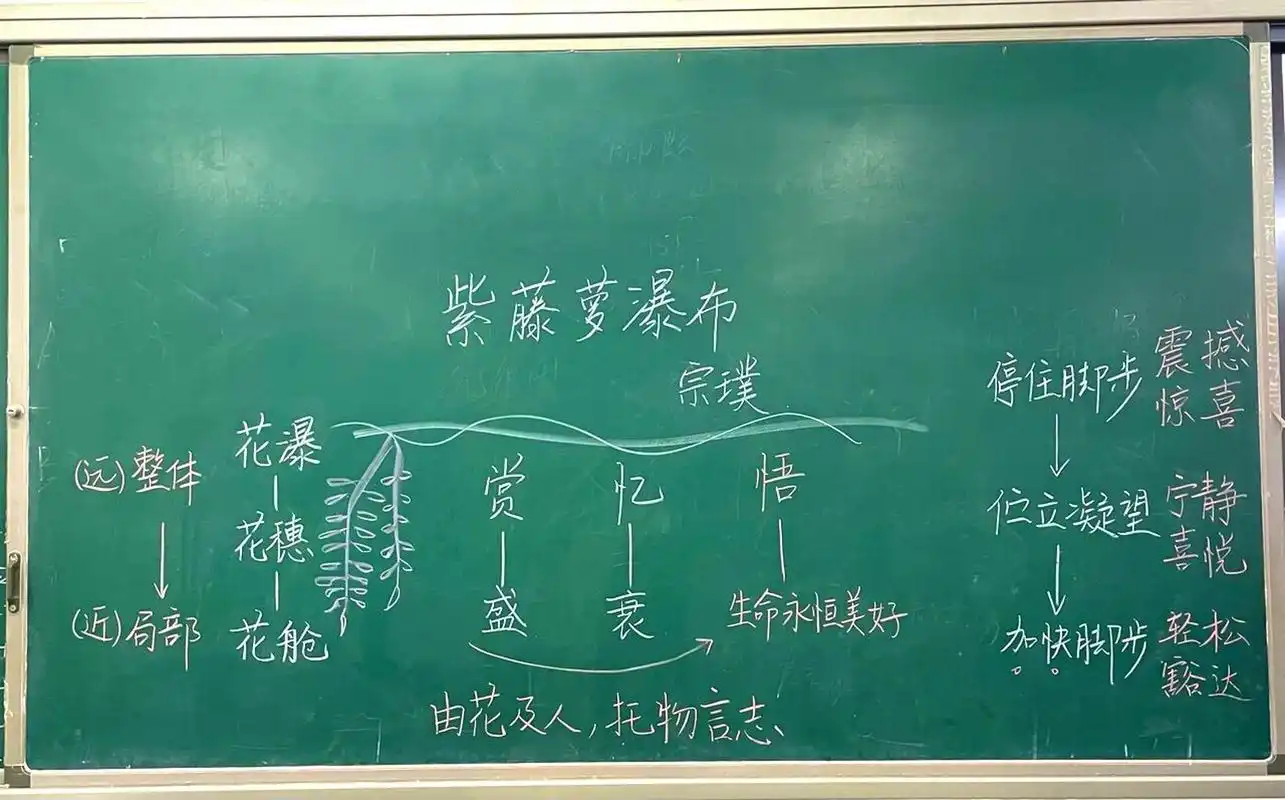 紫藤萝瀑布
宗璞
(远)整体
(近)局部
花瀑
花穗
花舱
赏
盛
忆
衰
悟
生命永恒美好
由花及人,托物言志
停住脚步
震撼
惊喜
伫立凝望
宁静
喜悦
加快脚步
轻松
豁达